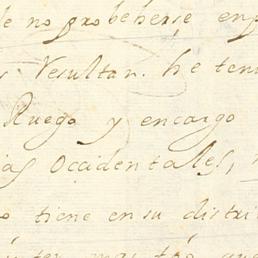 de no probeherse en
Resultan. he ten
Ruego y encargo
ias Occidentales,
o tiene en su distri
mas tpo que